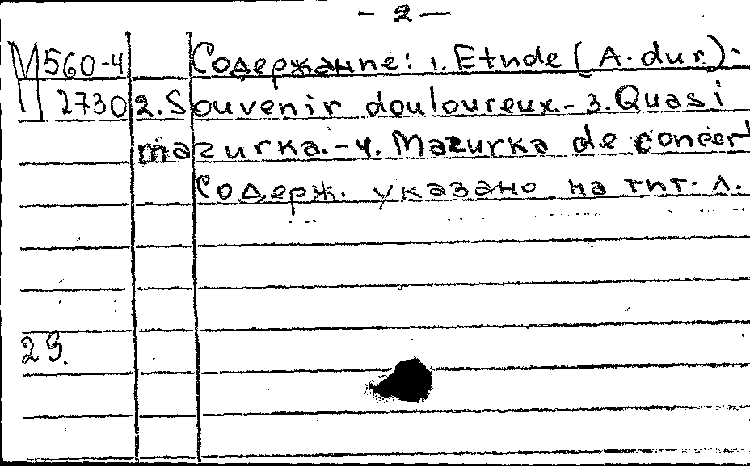 — 2 —
М 560-4 Содержание: 1. Etude (A-dur).-
П 2730 2. Souvenir douloureux.- 3. Quasi
mazurka.- 4. Mazurka de concert
Содерж. указано на тит. л.
29.